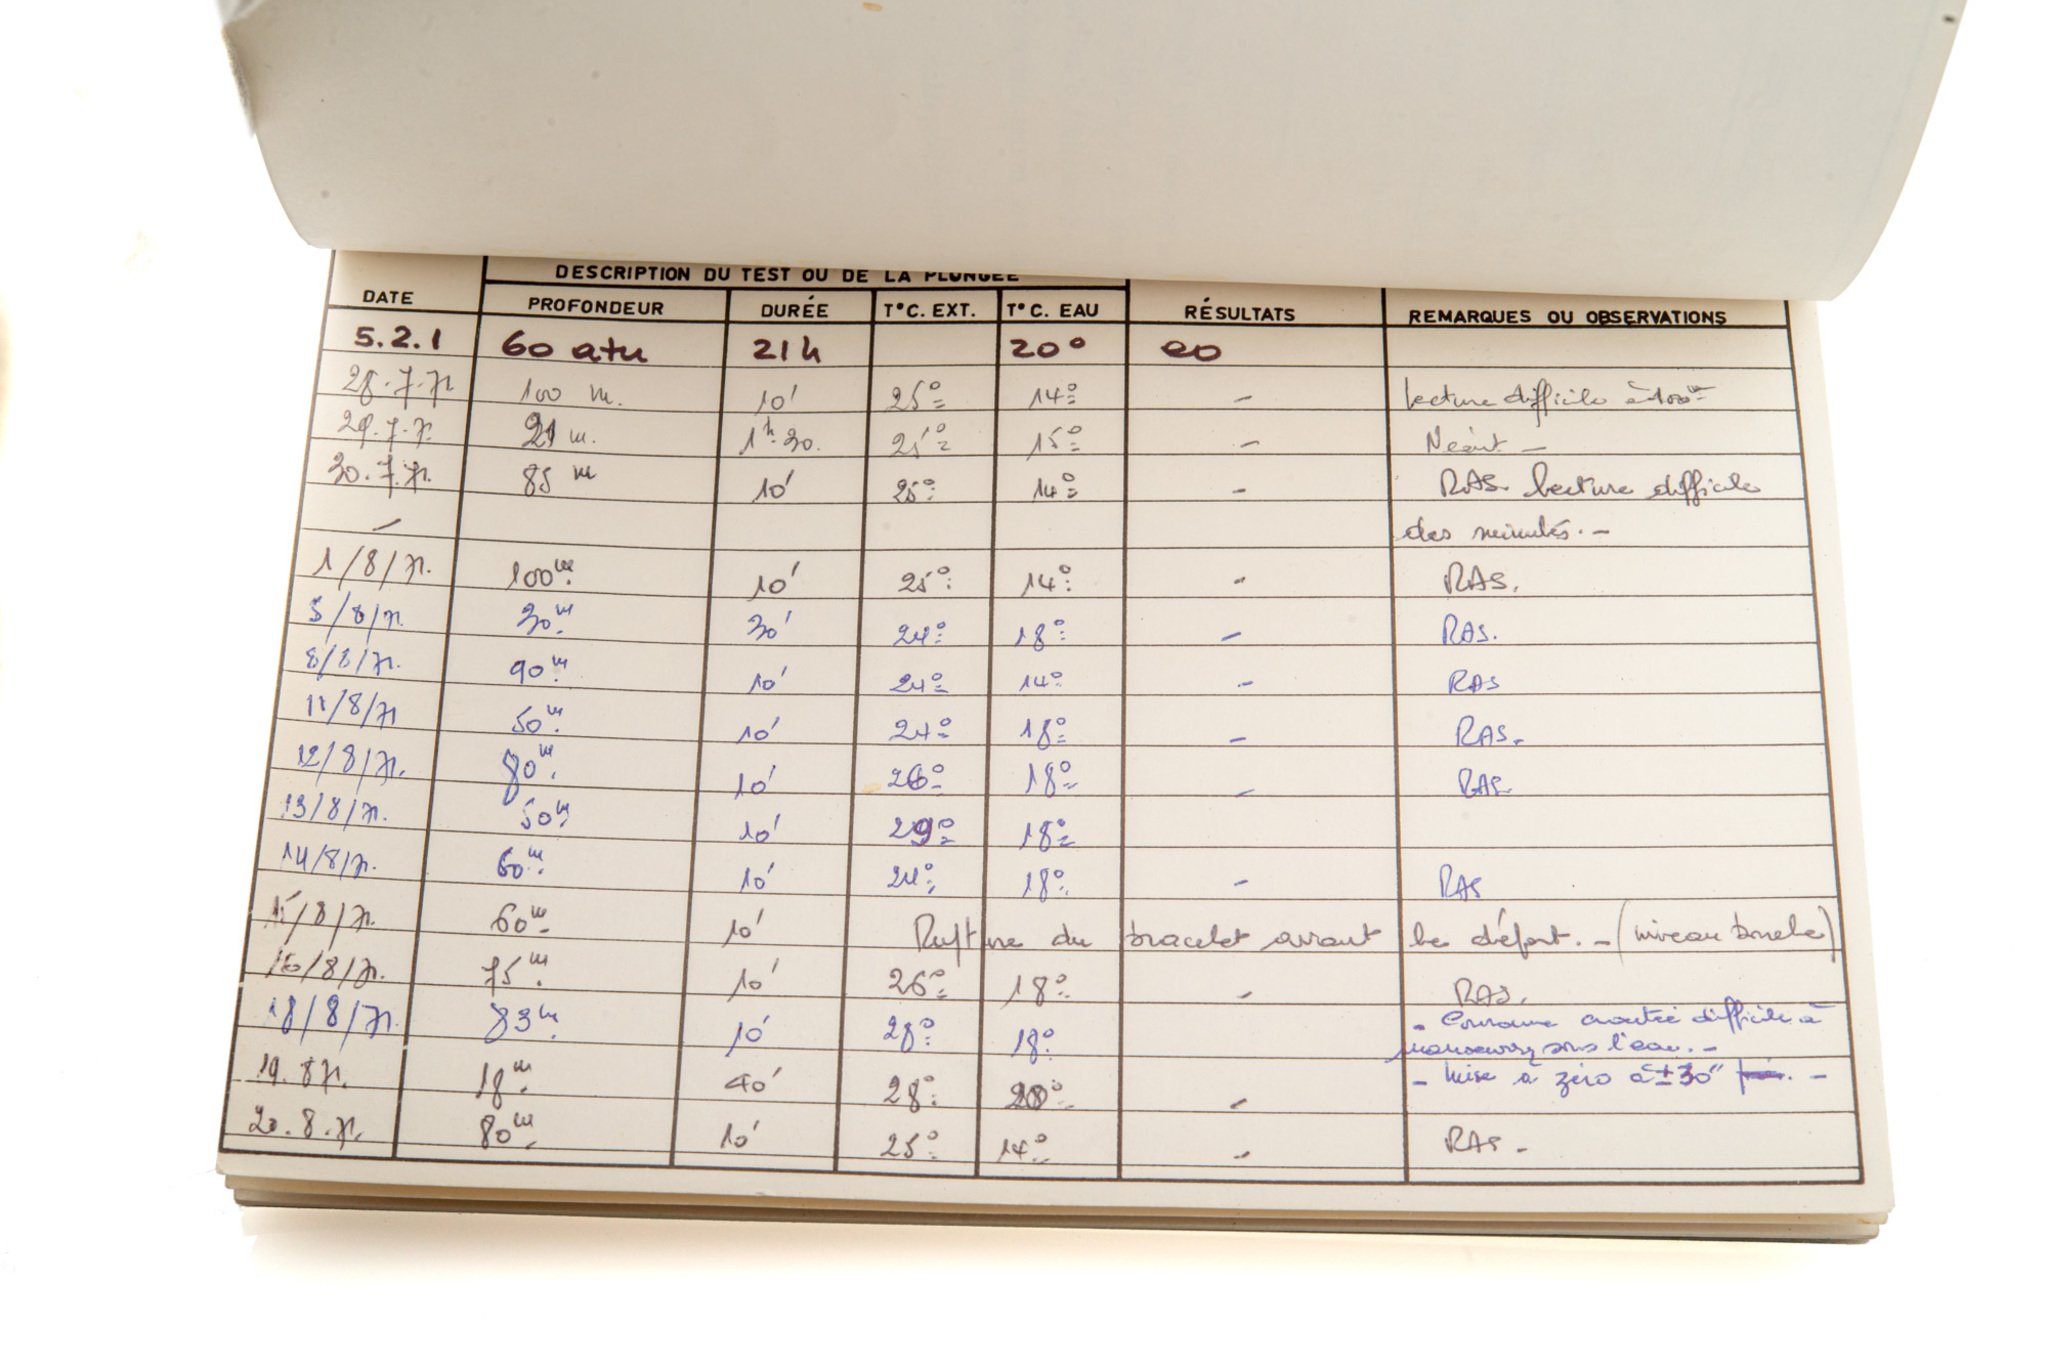 DESCRIPTION DU TEST OU DE LA PLONGÉE
DATE PROFONDEUR DURÉE T°C. EXT. T°C. EAU RÉSULTATS REMARQUES OU OBSERVATIONS
5.2.1 60 atu 21h 20°
28.7.71 100 m. 10' 25° 14° - Lecture difficile à 100m
29.7.71 21 m. 1h.30. 25° 15° - Néant -
30.7.71. 85 m 10' 25° 14° - RAS. Lecture difficile
- des minutes. -
1/8/71. 100m. 10' 25° 14° - RAS.
5/8/71. 30m. 30' 24° 18° - RAS.
8/8/71. 90m. 10' 24° 14° - RAS
11/8/71 50m. 10' 24° 18° - RAS.
12/8/71. 80m. 10' 26° 18° - RAS.
13/8/71. 50m 10' 29° 18°
14/8/71. 60m. 10' 24° 18° - RAS
15/8/71. 60m 10' Rupture du bracelet avant le départ. - (niveau boucle)
16/8/71. 75m. 10' 26° 18° - RAS.
18/8/71. 83m. 10' 28° 18° - Couronne crantée difficile à
manoeuvrer sous l'eau. -
- Mise à zéro à ±30" -
19.8.71. 18m. 40' 28° 20° -
20.8.71. 80m. 10' 25° 14° - RAS -